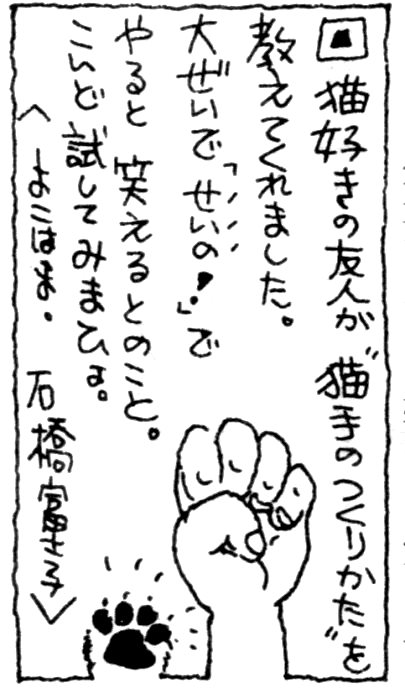 猫好きの友人が“猫手のつくりかた”を
教えてくれました。
大ぜいで「せいの!」で
やると笑えるとのこと。
こんど試してみまひょ。
＜よこはま・石橋富士子＞